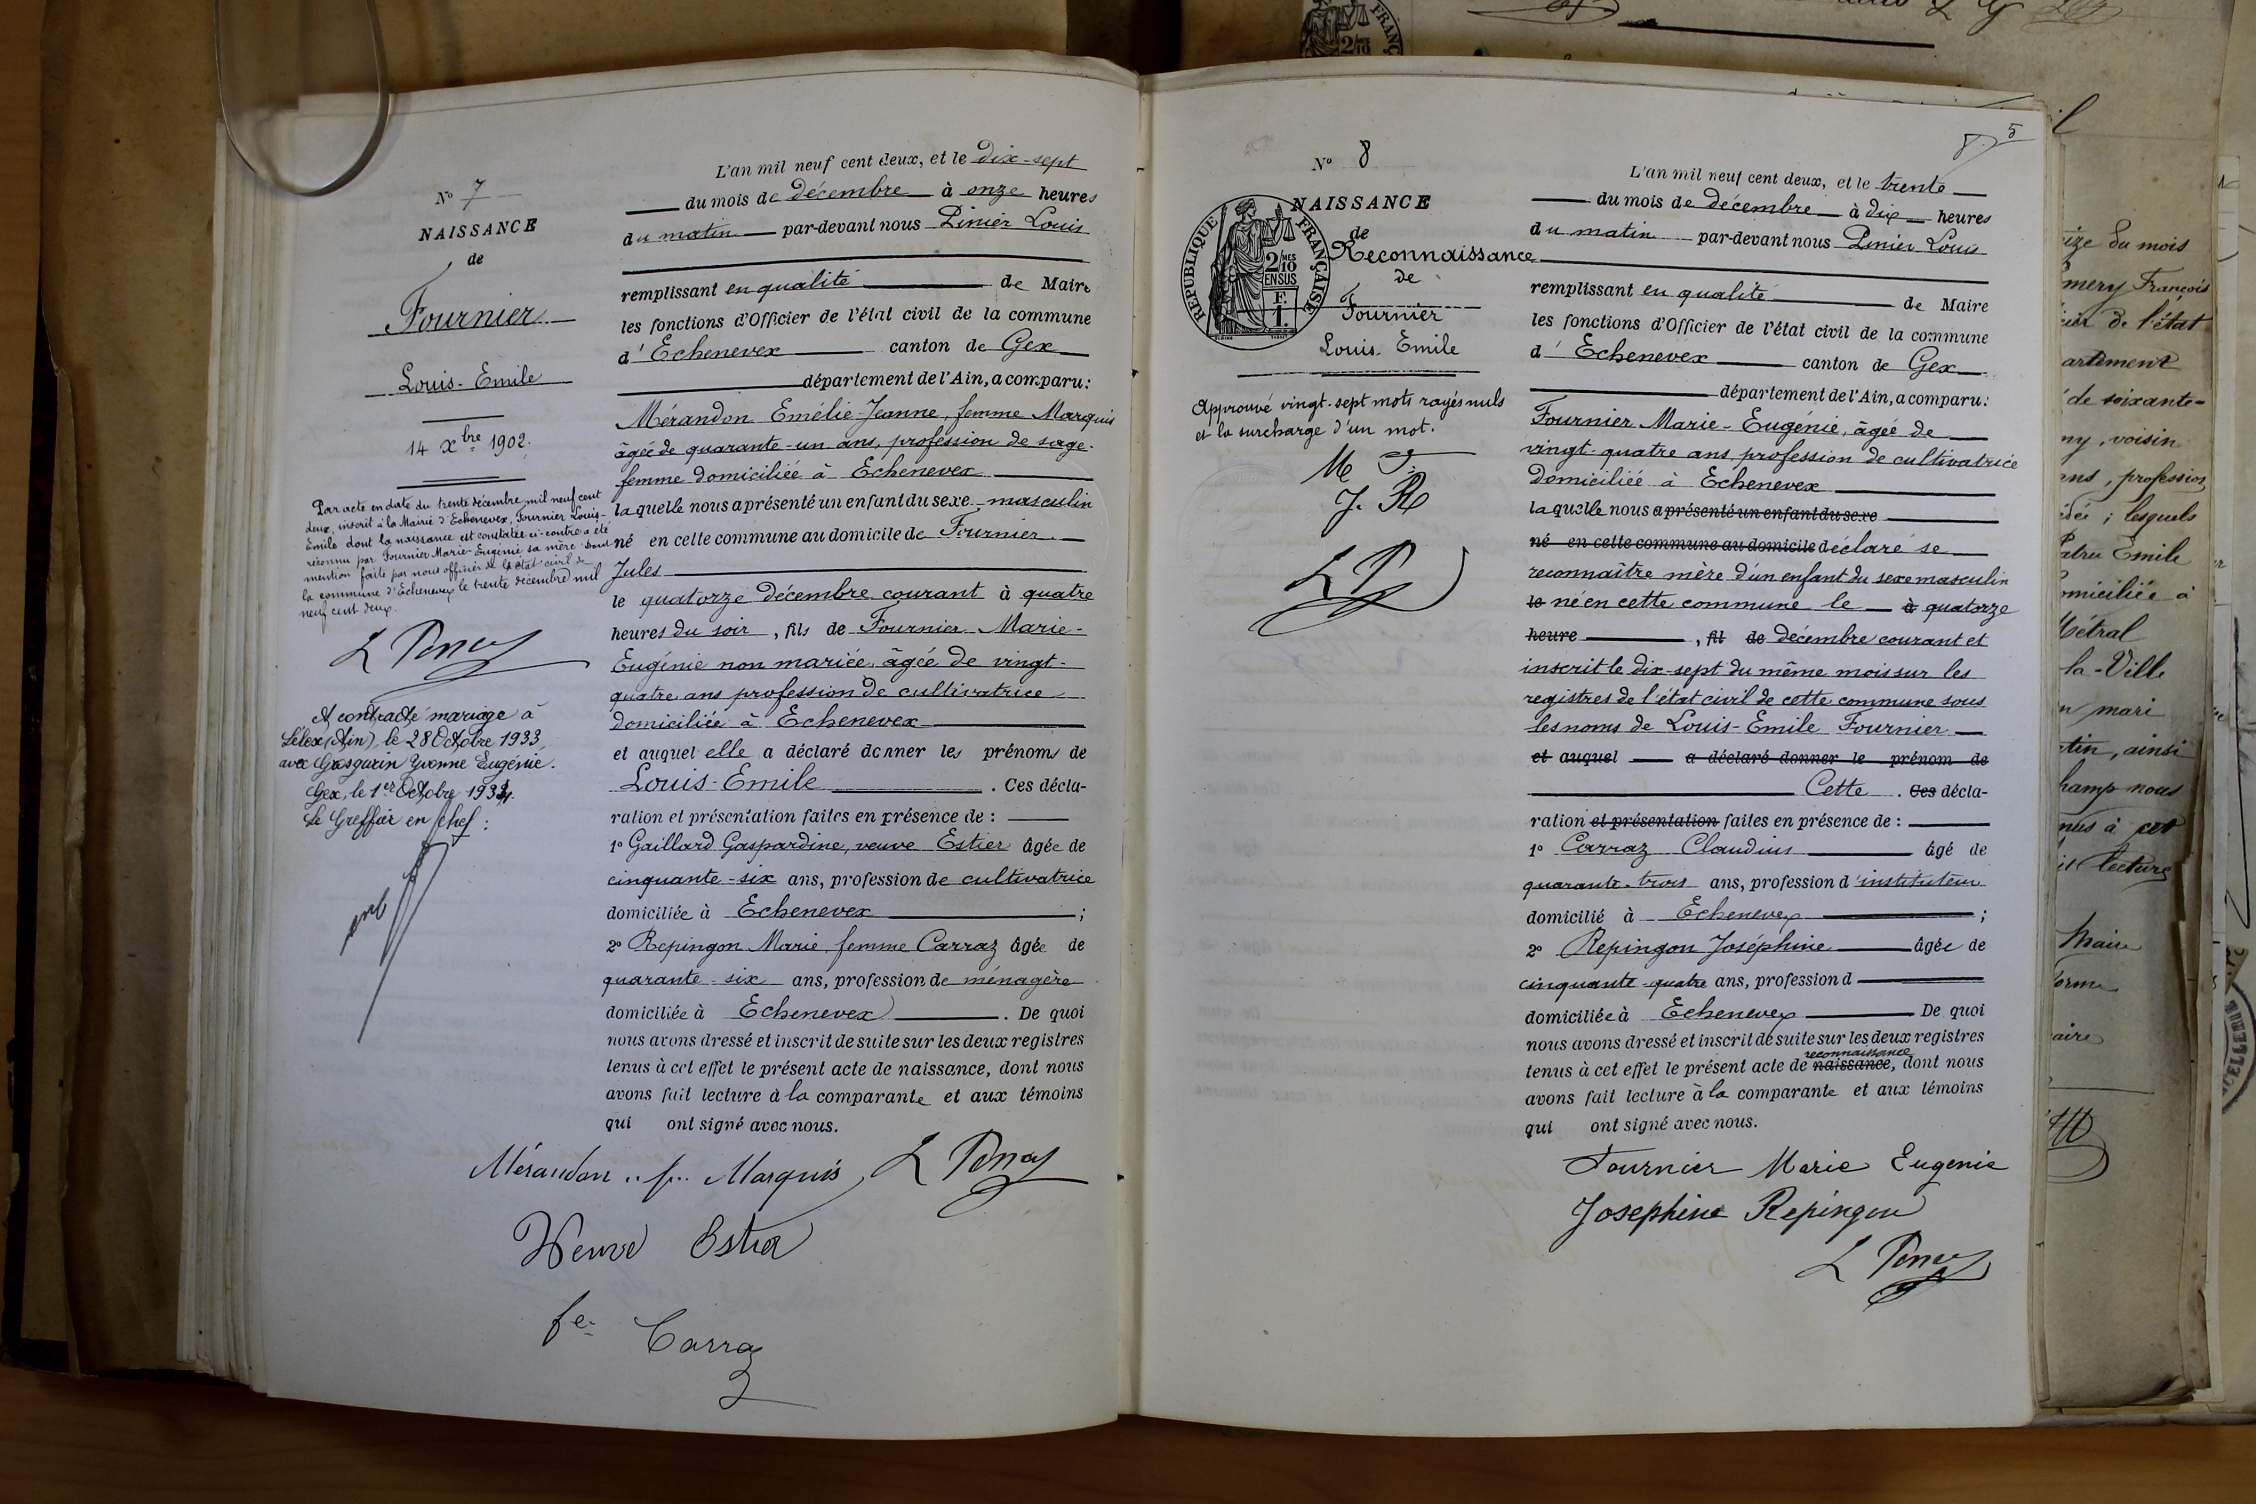 N° 7
NAISSANCE
de
Fournier
Louis-Emile
14 Xbre 1902.
Par acte en date du trente décembre mil neuf cent
deux, inscrit à la Mairie d'Echenevex, Fournier Louis-
Emile dont la naissance est constatée ci-contre a été
reconnu par Fournier Marie-Eugénie sa mère dont
mention faite par nous officier de l'état civil de
la commune d'Echenevex le trente décembre mil
neuf cent deux.
A contracté mariage à
Lélex (Ain) le 28 Octobre 1933
avec Grosgurin Yvonne Eugénie.
Gex, le 1er Octobre 1934.
Le Greffier en chef :
L'an mil neuf cent deux, et le dix-sept
du mois de décembre à onze heures
du matin par-devant nous Pinier Louis
remplissant en qualité de Maire
les fonctions d'Officier de l'état civil de la commune
d'Echenevex canton de Gex
département de l'Ain, a comparu :
Mérandon Emélie-Jeanne, femme Marquis
âgée de quarante-un ans, profession de sage-
femme domiciliée à Echenevex
laquelle nous a présenté un enfant du sexe masculin
né en cette commune au domicile de Fournier
Jules
le quatorze décembre courant à quatre
heures du soir, fils de Fournier Marie-
Eugénie non mariée, âgée de vingt-
quatre ans profession de cultivatrice
domiciliée à Echenevex
et auquel elle a déclaré donner les prénoms de
Louis-Emile. Ces décla-
ration et présentation faites en présence de :
1° Gaillard Gaspardine, veuve Estier âgée de
cinquante-six ans, profession de cultivatrice
domiciliée à Echenevex ;
2° Repingon Marie, femme Carraz âgée de
quarante-six ans, profession de ménagère
domiciliée à Echenevex. De quoi
nous avons dressé et inscrit de suite sur les deux registres
tenus à cet effet le présent acte de naissance, dont nous
avons fait lecture à la comparante et aux témoins
qui ont signé avec nous.
Mérandon f. Marquis
Veuve Estier
fe. Carraz
5
N° 8
NAISSANCE
de
Reconnaissance
de
Fournier
Louis-Emile
REPUBLIQUE FRANÇAISE
2/10MES
EN SUS
F.
1.
Approuvé vingt-sept mots rayés nuls
et la surcharge d'un mot.
J. R
L P
L'an mil neuf cent deux, et le trente
du mois de décembre à dix heures
du matin par-devant nous Pinier Louis
remplissant en qualité de Maire
les fonctions d'Officier de l'état civil de la commune
d'Echenevex canton de Gex
département de l'Ain, a comparu :
Fournier Marie-Eugénie, âgée de
vingt-quatre ans, profession de cultivatrice
domiciliée à Echenevex
laquelle nous a présenté un enfant du sexe
né en cette commune au domicile déclaré se
reconnaître mère d'un enfant du sexe masculin
le né en cette commune le à quatorze
heure, fil de décembre courant et
inscrit le dix-sept du même mois sur les
registres de l'état civil de cette commune sous
les noms de Louis-Emile Fournier
et auquel a déclaré donner le prénom de
Cette. Ces décla-
ration et présentation faites en présence de :
1° Carraz Claudius âgé de
quarante-trois ans, profession d'instituteur
domicilié à Echenevex ;
2° Repingon Joséphine âgée de
cinquante-quatre ans, profession d
domiciliée à Echenevex De quoi
nous avons dressé et inscrit de suite sur les deux registres
reconnaissance
tenus à cet effet le présent acte de naissance, dont nous
avons fait lecture à la comparante et aux témoins
qui ont signé avec nous.
Fournier Marie Eugenie
Josephine Repingon
du mois
François
de l'état
de soixante-
voisin
profession
lesquels
Emile
Métral
la-Ville
mari
ainsi
nous
lecture
Maire